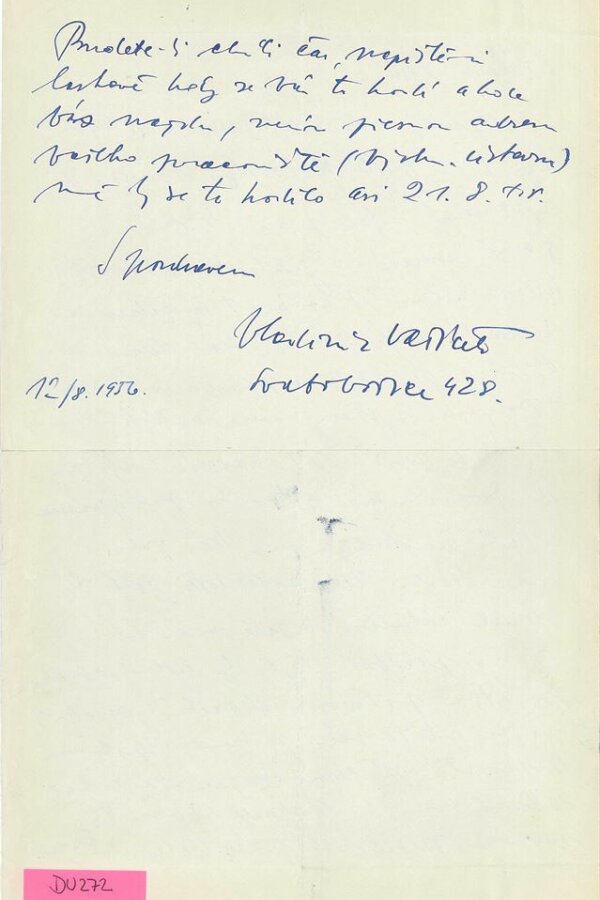 Budete-li chtíti čas, napište mi
laskavě kdy se Vám to hodí a kde
Vás najdu, neznám přesnou adresu
vašeho pracoviště (Výzk. ústavu)
mně by se to hodilo asi 21. 8. t.r.
S pozdravem
Vladimír
12/8. 1956.
Svatobořice 428.
DU272